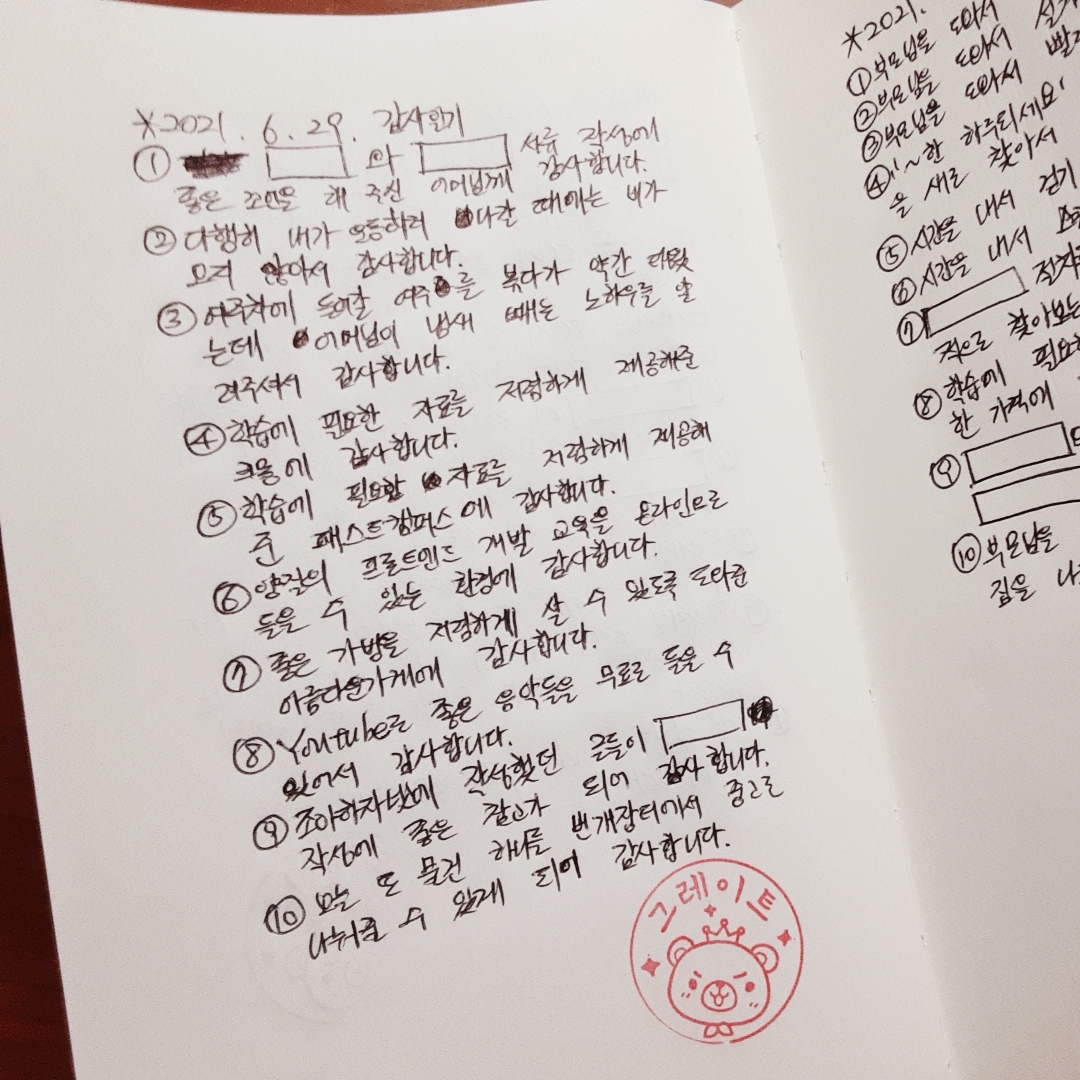 *2021. 6. 29. 감사일기
① 와 서류 작성에
좋은 조언을 해 주신 어머님께 감사합니다.
② 다행히 내가 운동하러 나갈 때에는 비가
오지 않아서 감사합니다.
③ 여주차에 들어갈 여주를 볶다가 약간 태웠
는데 어머님이 냄새 빼는 노하우를 알
려주셔서 감사합니다.
④ 학습에 필요한 자료를 저렴하게 제공해준
크몽에 감사합니다.
⑤ 학습에 필요한 자료를 저렴하게 제공해
준 패스트캠퍼스에 감사합니다.
⑥ 양질의 프론트엔드 개발 교육을 온라인으로
들을 수 있는 환경에 감사합니다.
⑦ 좋은 가방을 저렴하게 살 수 있도록 도와준
아름다운가게에 감사합니다.
⑧ Youtube로 좋은 음악들을 무료로 들을 수
있어서 감사합니다.
⑨ 조아하자넷에 작성했던 글들이
작성에 좋은 참고가 되어 감사합니다.
⑩ 오늘 또 물건 하나를 번개장터에서 중고로
나눠줄 수 있게 되어 감사합니다.
그레이트
*2021.
① 부모님을 도와서
② 부모님을 도와서
③ 부모님을 도와서
④ "~한 하루되세요"
을 새로 찾아서
⑤ 시간을 내서 걷기
⑥ 시간을 내서
⑦
적으로 찾아보는
⑧ 학습에 필요한
한 가격에
⑨
⑩ 부모님을
짐을